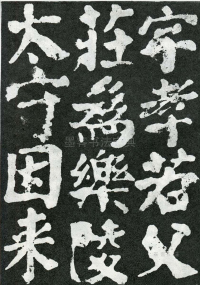 字孝若父
莊爲樂陵
太守因来